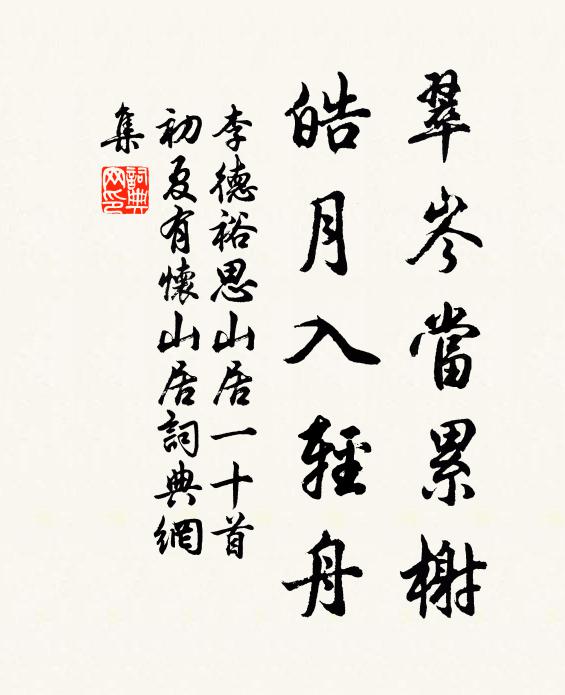 翠岑當累榭
皓月入輕舟
李德裕思山居一十首
初夏有懷山居詞典網
集
詞典网印